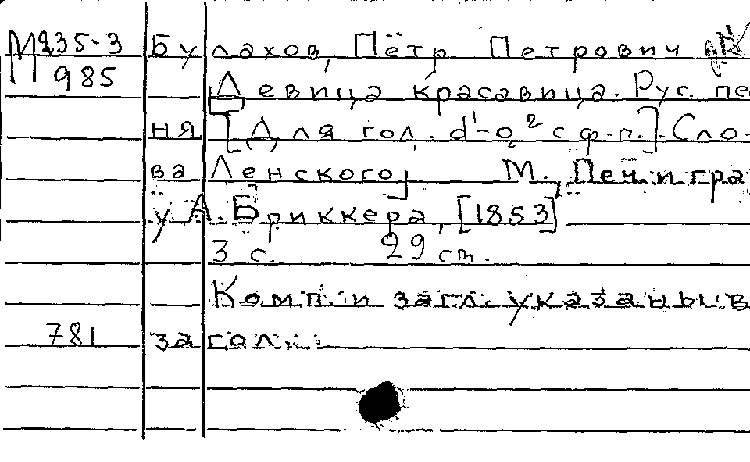 М 235-3 Булахов, Пётр Петрович
985 Девица красавица. Рус. пе
ня [Для гол. d¹-g² с ф.-п.]. Сло-
ва Ленского. М., Печ. и грав.
у А. Бриккера, [1853]
3 с. 29 см.
Комп. и загл. указаны в
781 загол.